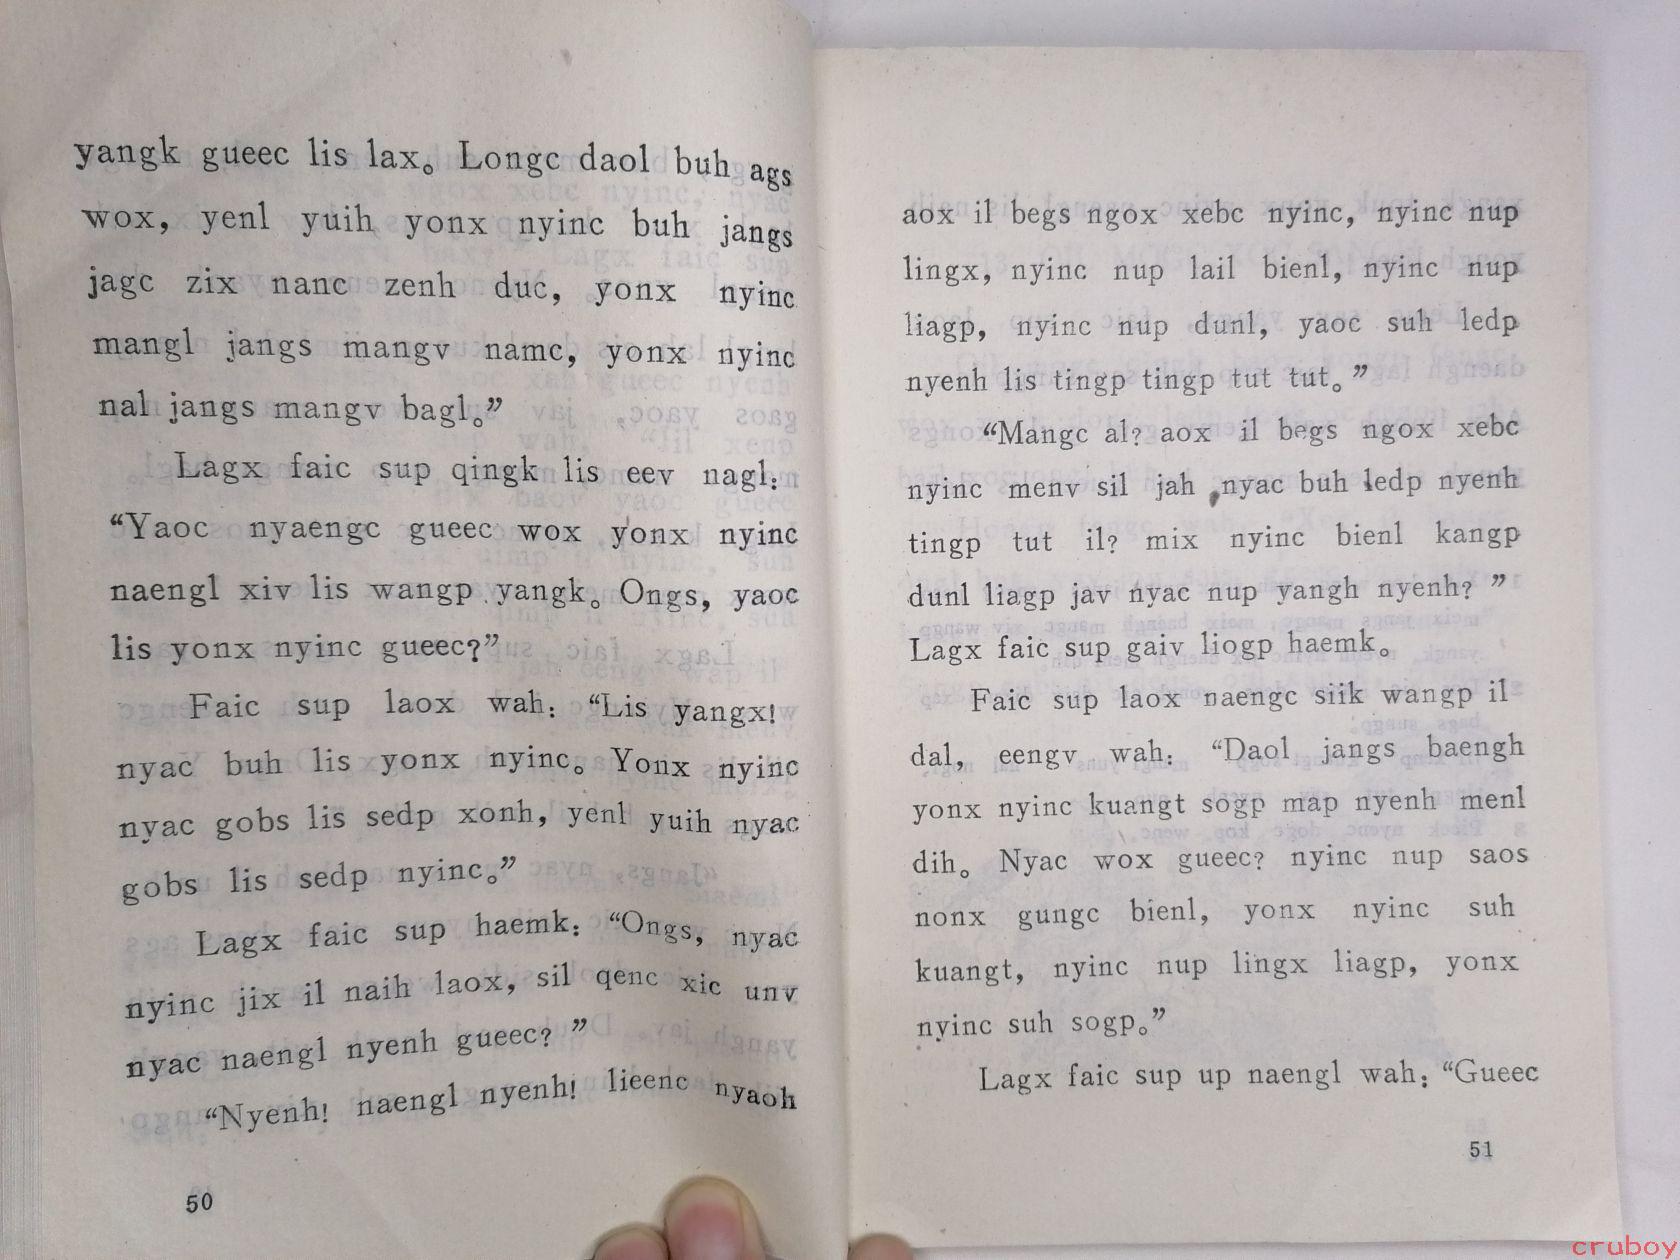 yangk gueec lis lax。 Longc daol buh ags
wox, yenl yuih yonx nyinc buh jangs
jagc zix nanc zenh duc, yonx nyinc
mangl jangs mangv namc, yonx nyinc
nal jangs mangv bagl。”
Lagx faic sup qingk lis eev nagl:
“Yaoc nyaengc gueec wox yonx nyinc
naengl xiv lis wangp yangk。 Ongs, yaoc
lis yonx nyinc gueec?”
Faic sup laox wah: “Lis yangx!
nyac buh lis yonx nyinc。 Yonx nyinc
nyac gobs lis sedp xonh, yenl yuih nyac
gobs lis sedp nyinc。”
Lagx faic sup haemk: “Ongs, nyac
nyinc jix il naih laox, sil qenc xic unv
nyac naengl nyenh gueec? ”
“Nyenh! naengl nyenh! lieenc nyaoh
50
aox il begs ngox xebc nyinc, nyinc nup
lingx, nyinc nup lail bienl, nyinc nup
liagp, nyinc nup dunl, yaoc suh ledp
nyenh lis tingp tingp tut tut。”
“Mangc al? aox il begs ngox xebc
nyinc menv sil jah nyac buh ledp nyenh
tingp tut il? mix nyinc bienl kangp
dunl liagp jav nyac nup yangh nyenh? ”
Lagx faic sup gaiv liogp haemk。
Faic sup laox naengc siik wangp il
dal, eengv wah: “Daol jangs baengh
yonx nyinc kuangt sogp map nyenh menl
dih。 Nyac wox gueec? nyinc nup saos
nonx gungc bienl, yonx nyinc suh
kuangt, nyinc nup lingx liagp, yonx
nyinc suh sogp。”
Lagx faic sup up naengl wah: “Gueec
51
cruboy